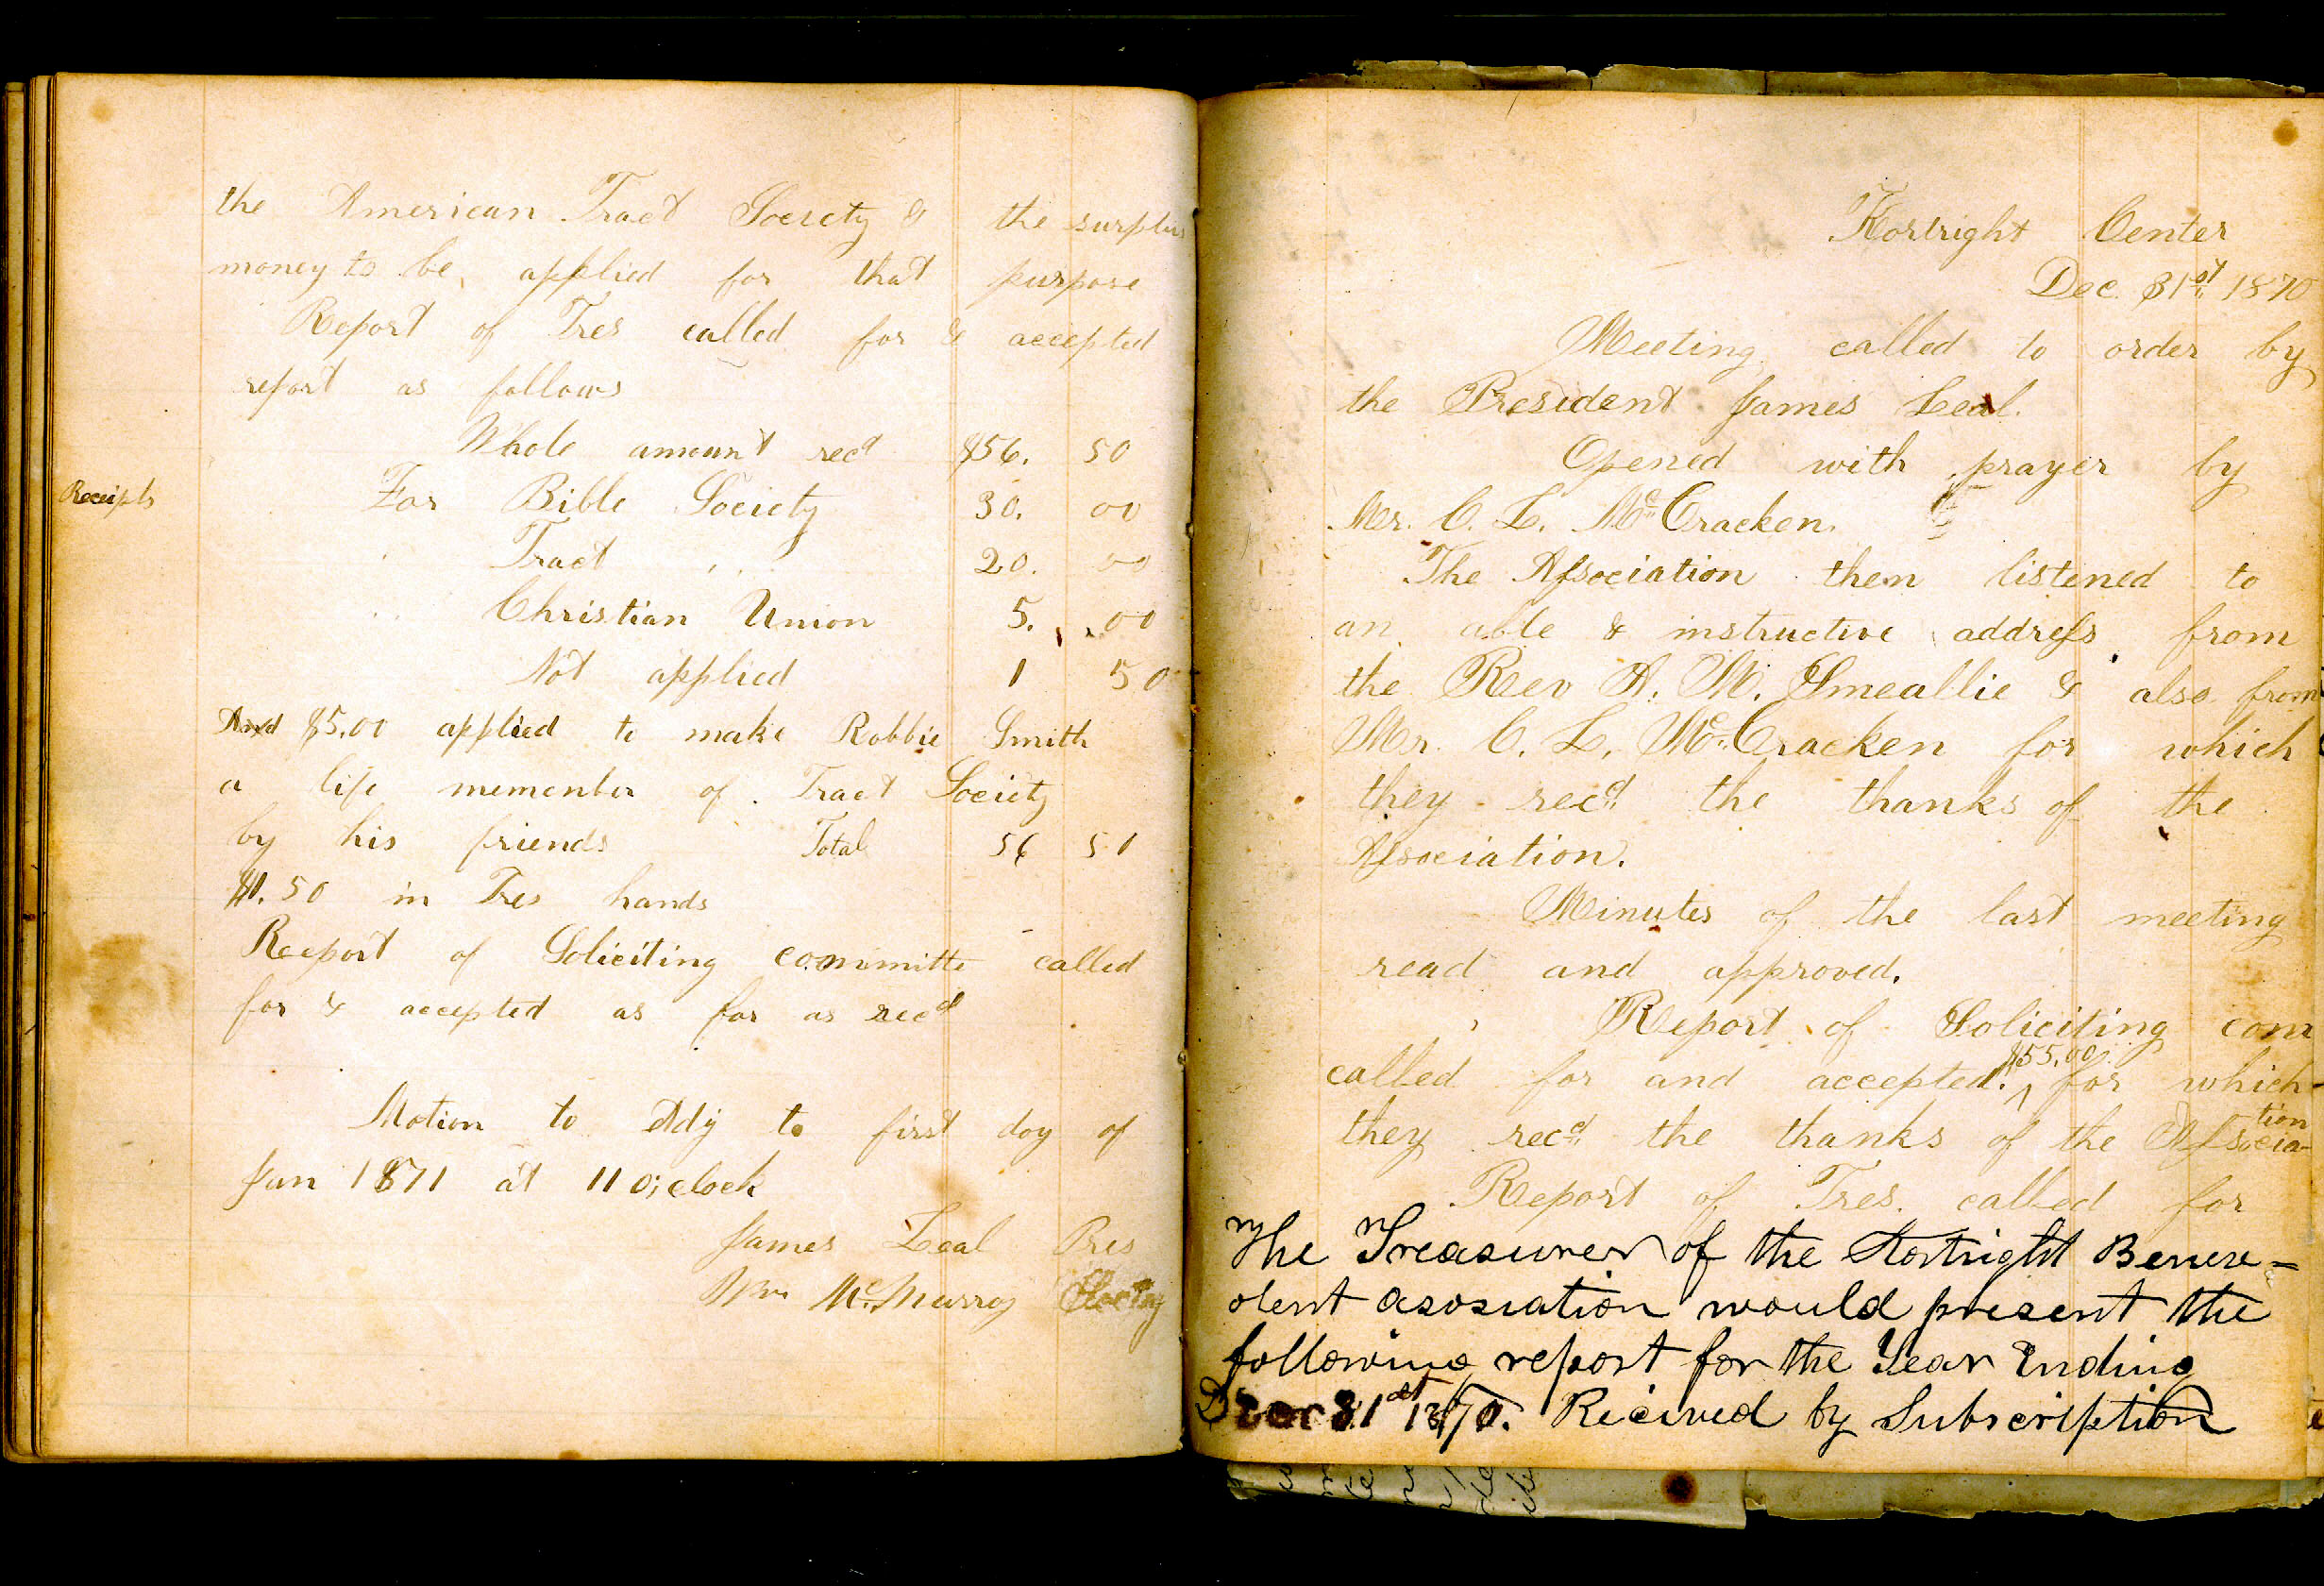 the American Tract Society & the surplus
money to be applied for that purpose
Report of Tres called for & accepted
report as follows
Whole amount recd $56. 50
Receipts
For Bible Society 30. 00
" Tract " 20. 00
" Christian Union 5. 00
Not applied 1 50
And $5.00 applied to make Robbie Smith
a life memember of Tract Society
by his friends Total 56 50
$1.50 in Tres hands
Reeport of Soliciting committe called
for & accepted as far as recd
Motion to Adj to first day of
Jan 1871 at 11 o;clock
James Leal Pres
Wm McMurray
Kortright Center
Dec. 31st 1870
Meeting called to order by
the President James Leal.
Opened with prayer by
Mr. C. L. McCracken.
The Association then listened to
an able & instructive address from
the Rev A. M. Smeallie & also from
Mr. C. L. McCracken for which
they recd the thanks of the
Association.
Minutes of the last meeting
read and approved.
Report of Soliciting com
called for and accepted. $55.00 for which
they recd the thanks of the Association
Report of Tres. called for
The Treasurer of the Kortright Benev=
olent asosiation would present the
following report for the Year Ending
Dec 31st 1870. Reicived by Subscription